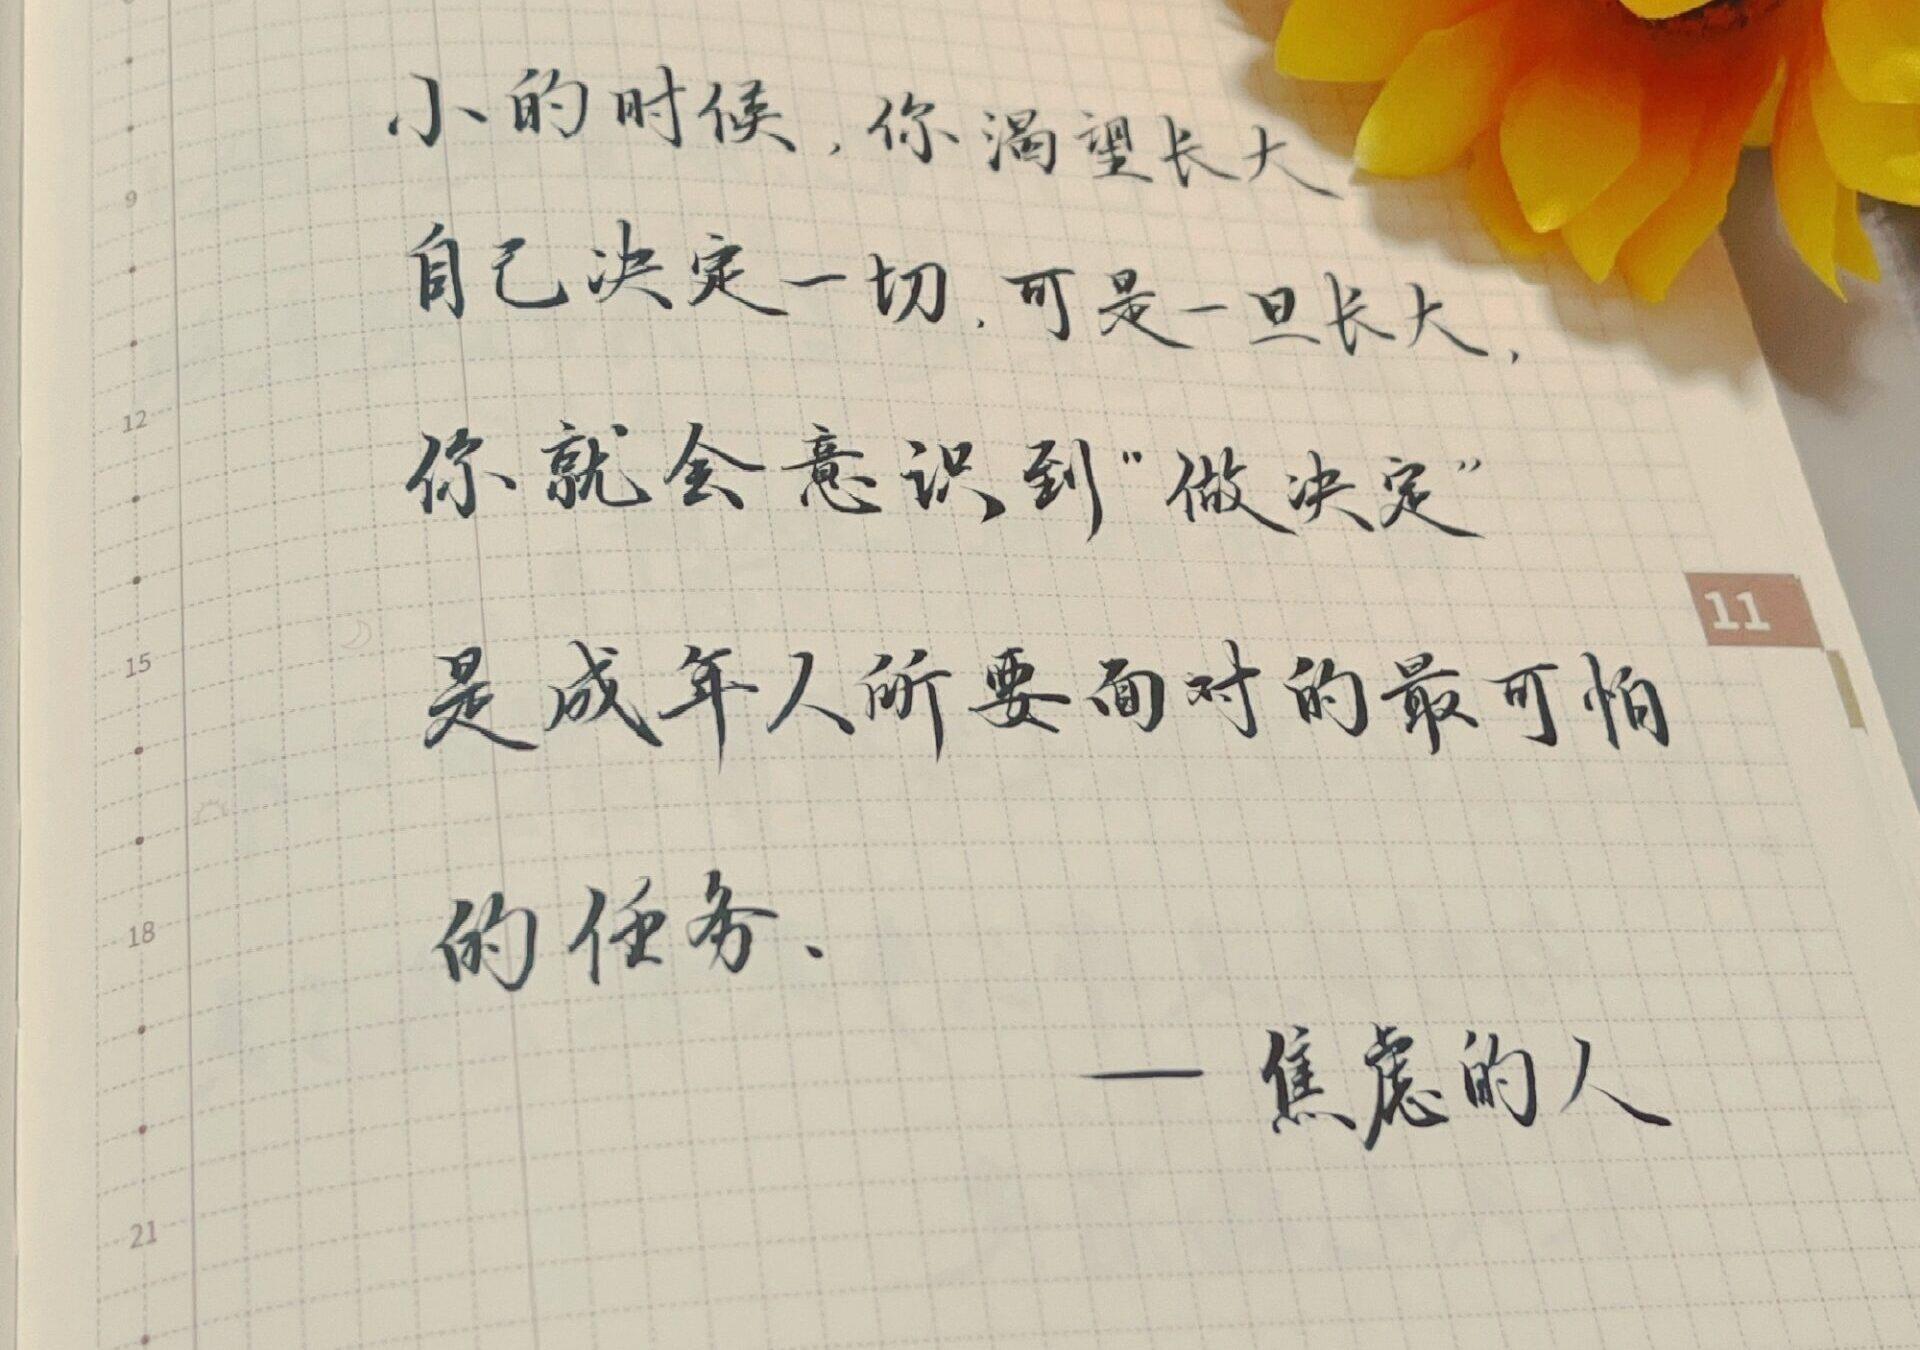 小的时候，你渴望长大
自己决定一切，可是一旦长大，
你就会意识到“做决定”
是成年人所要面对的最可怕
的任务、
— 焦虑的人
9
12
15
18
21
11